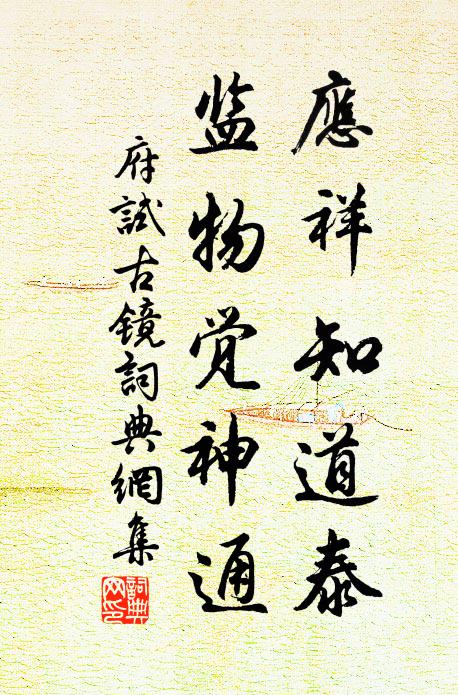 應祥知道泰
监物觉神通
府試古鏡詞典網集
詞典
网印